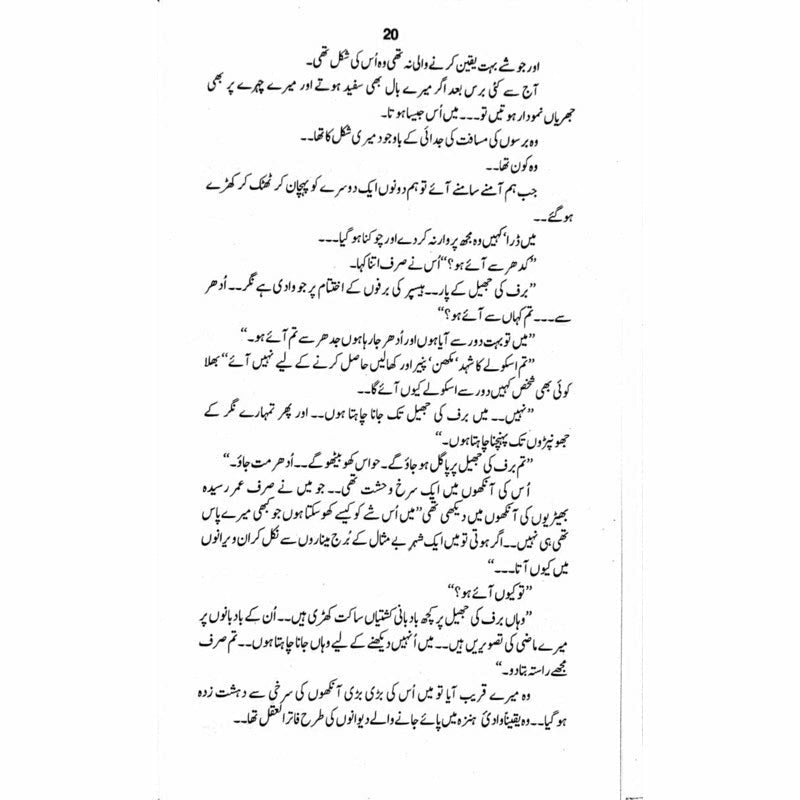 20
اور جو شے بہت یقین کرنے والی نہ تھی وہ اُس کی شکل تھی۔
آج سے کئی برس بعد اگر میرے بال بھی سفید ہوتے اور میرے چہرے پر بھی
جھریاں نمودار ہوتیں تو۔۔۔ میں اُس جیسا ہوتا۔
وہ برسوں کی مسافت کی جدائی کے باوجود میری شکل کا تھا۔۔
وہ کون تھا۔۔
جب ہم آمنے سامنے آئے تو ہم دونوں ایک دوسرے کو پہچان کر ٹھٹک کر کھڑے
ہو گئے۔۔
میں ڈرا‘ کہیں وہ مجھ پر وار نہ کر دے اور چوکنا ہو گیا۔۔۔
”کدھر سے آئے ہو؟“ اُس نے صرف اتنا کہا۔
”برف کی جھیل کے پار۔۔ ہیسپر کی برفوں کے اختتام پر جو وادی ہے نگر۔۔ اُدھر
سے۔۔۔ تم کہاں سے آئے ہو؟“
”میں تو بہت دور سے آیا ہوں اور اُدھر جا رہا ہوں جدھر سے تم آئے ہو۔“
”تم اسکولے کا شہد‘ مکھن‘ پنیر اور کھالیں حاصل کرنے کے لیے نہیں آئے“ بھلا
کوئی بھی شخص کہیں دور سے اسکولے کیوں آئے گا۔۔
”نہیں۔۔ میں برف کی جھیل تک جانا چاہتا ہوں۔۔ اور پھر تمہارے نگر کے
جھونپڑوں تک پہنچنا چاہتا ہوں۔“
”تم برف کی جھیل پر پاگل ہو جاؤ گے۔ حواس کھو بیٹھو گے۔۔ اُدھر مت جاؤ۔“
اُس کی آنکھوں میں ایک سرخ وحشت تھی۔۔ جو میں نے صرف عمر رسیدہ
بھیڑیوں کی آنکھوں میں دیکھی تھی ”میں اُس شے کو کیسے کھو سکتا ہوں جو کبھی میرے پاس
تھی ہی نہیں۔۔ اگر ہوتی تو میں ایک شہرِ بے مثال کے بُرج میناروں سے نکل کر ان ویرانوں
میں کیوں آتا۔۔۔“
”تو کیوں آئے ہو؟“
”وہاں برف کی جھیل پر کچھ بادبانی کشتیاں ساکت کھڑی ہیں۔۔ اُن کے بادبانوں پر
میرے ماضی کی تصویریں ہیں۔۔ میں اُنہیں دیکھنے کے لیے وہاں جانا چاہتا ہوں۔۔ تم صرف
مجھے راستہ بتا دو۔“
وہ میرے قریب آیا تو میں اُس کی بڑی بڑی آنکھوں کی سرخی سے دہشت زدہ
ہو گیا۔۔ وہ یقیناً وادیٔ ہنزہ میں پائے جانے والے دیوانوں کی طرح فاتر العقل تھا۔۔